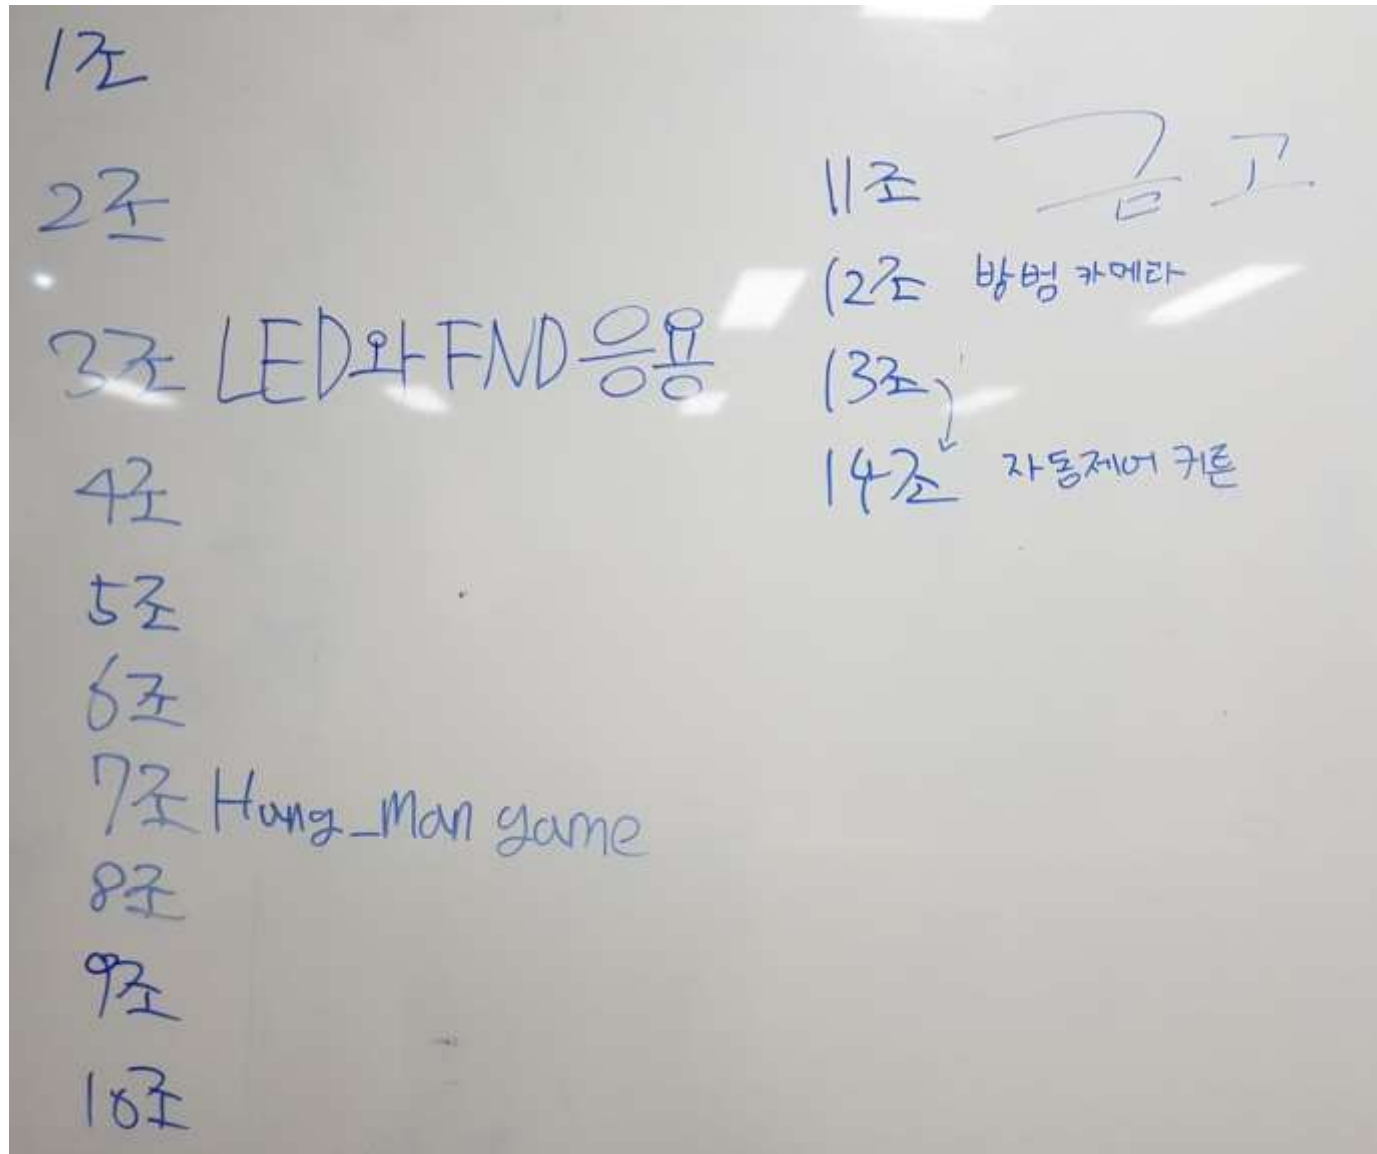 1조
2조
3조 LED와 FND 응용
4조
5조
6조
7조 Hung_Man game
8조
9조
10조
11조 금고
12조 방범 카메라
13조
14조 자동제어 커튼